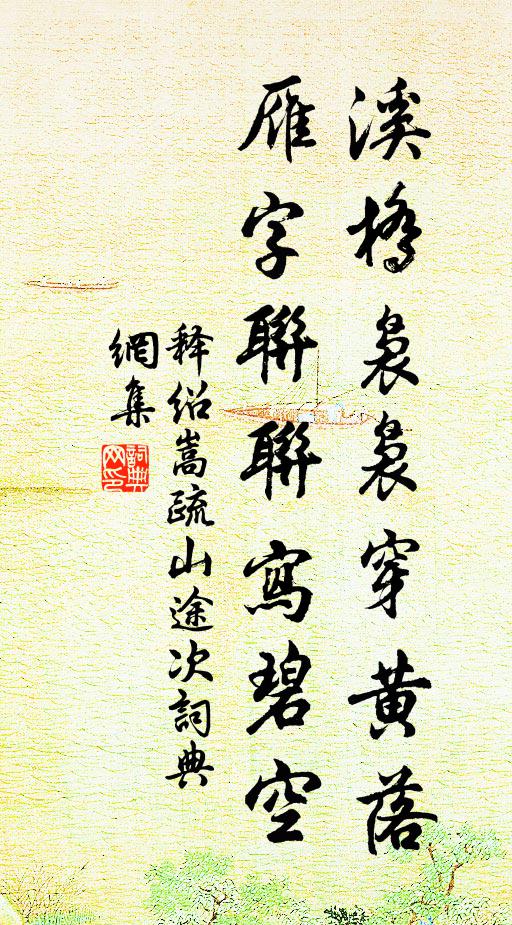 溪橋裊裊穿黃落
雁字聯聯寫碧空
释绍嵩疏山途次詞典
網集
詞典網印